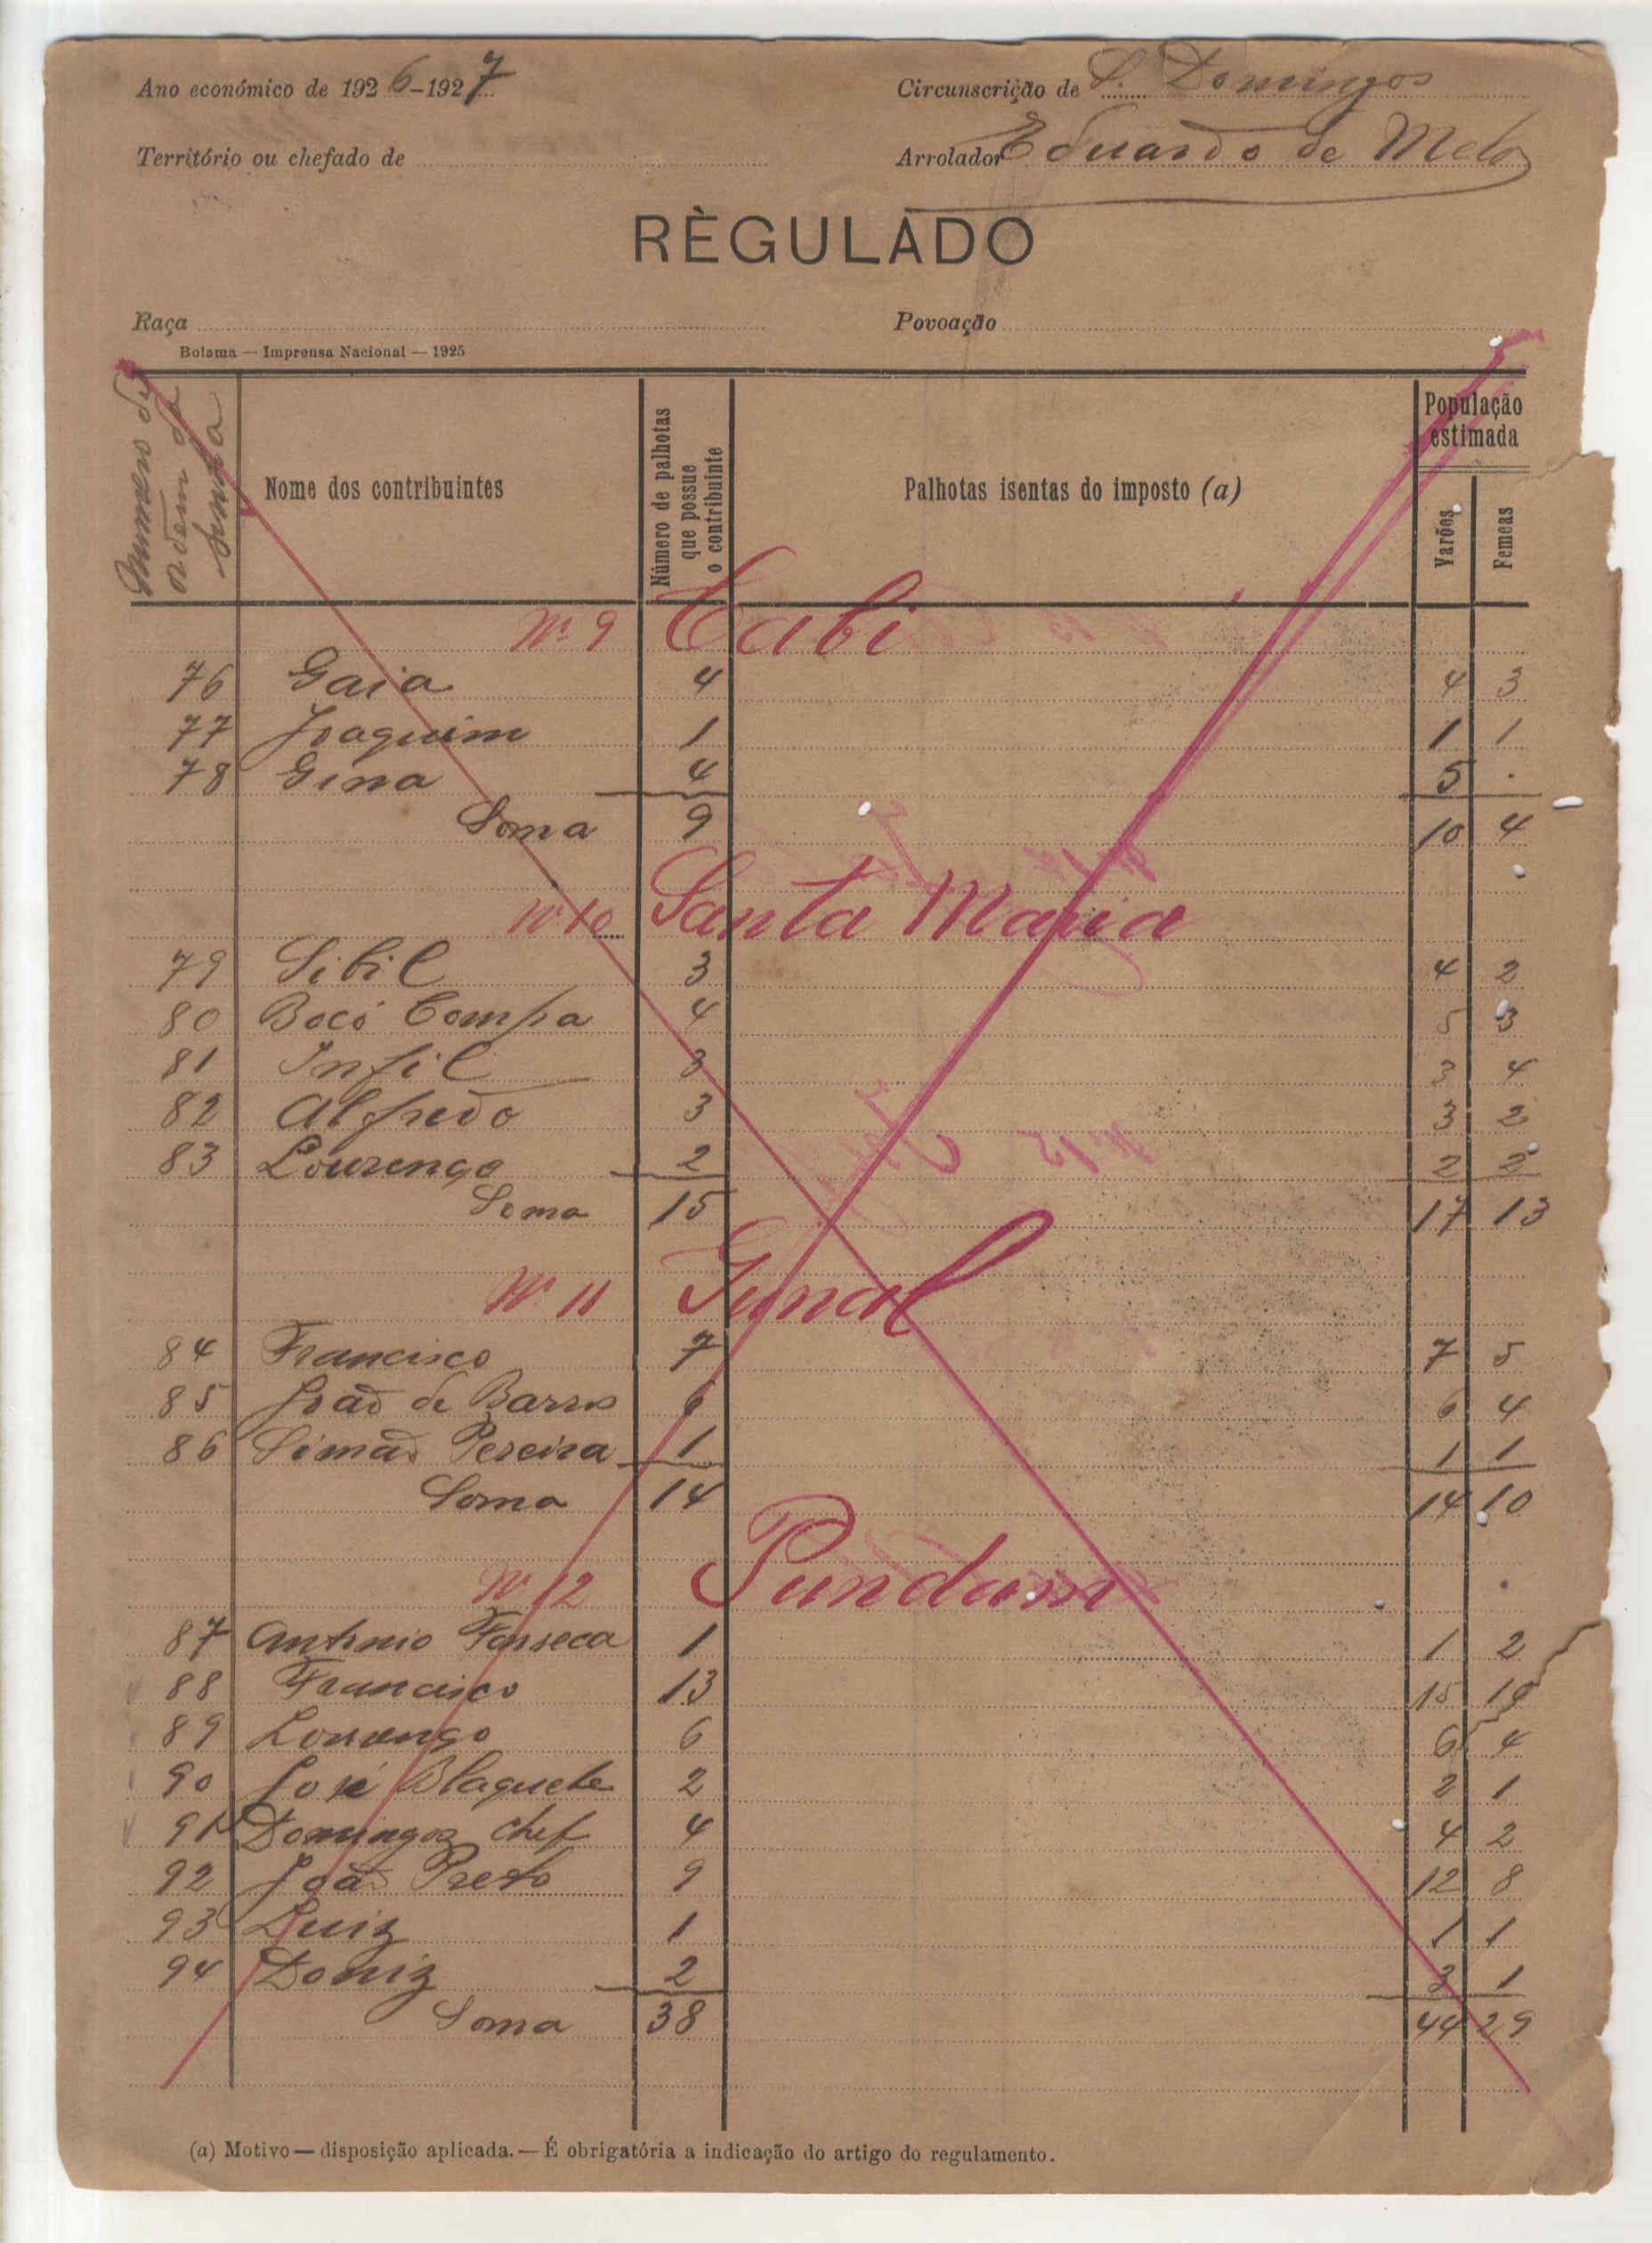 Ano económico de 1926-1927
Circunscrição de S. Domingos
Território ou chefado de
Arrolador Eduardo de Melo
RÈGULADO
Raça
Povoação
Bolama — Imprensa Nacional — 1925
Numero de ordem da
Nome dos contribuintes
Número de palhotas que possue o contribuinte
Palhotas isentas do imposto (a)
População estimada
Varões
Femeas
Nº 9 Cabi
76 Gaia 4 4 3
77 Joaquim 1 1 1
78 Gina 4 5 .
Soma 9 10 4
Nº 10 Santa Maria
79 Sibil 3 4 2
80 Bocó Compa 4 5 3
81 Infil 3 3 4
82 Alfredo 3 3 2
83 Lourenço 2 2 2
Soma 15 17 13
Nº 11 Gunal
84 Francisco 7 7 5
85 João de Barros 6 6 4
86 Simão Pereira 1 1 1
Soma 14 14 10
Nº 12 Pundam
87 Antonio Fonseca 1 1 2
88 Francisco 13 15 10
89 Lourenço 6 6 4
90 José Blaquete 2 2 1
91 Domingos chef 4 4 2
92 João Preto 9 12 8
93 Luiz 1 1 1
94 Doniz 2 3 1
Soma 38 44 29
(a) Motivo — disposição aplicada. — É obrigatória a indicação do artigo do regulamento.